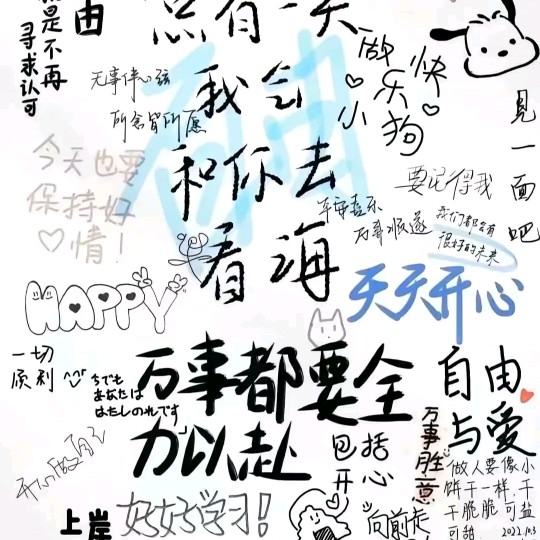 是不再
寻求认可
由
总有一天
我会
和你去
看海
做
快
乐
小
狗
見
一
面
吧
无事伴心弦
所念皆所愿
今天也要
保持好
情！
要记得我
平安喜乐
万事顺遂
我们都会有
很好的未来
HAPPY
天天开心
一切
顺利
万事都要全
力以赴
自由
与愛
包括
开心
万事胜意
做人要像小
饼干一样,干
干脆脆可盐
可甜
2022.10.3
开心做自己
上岸
好好学习!
向前走